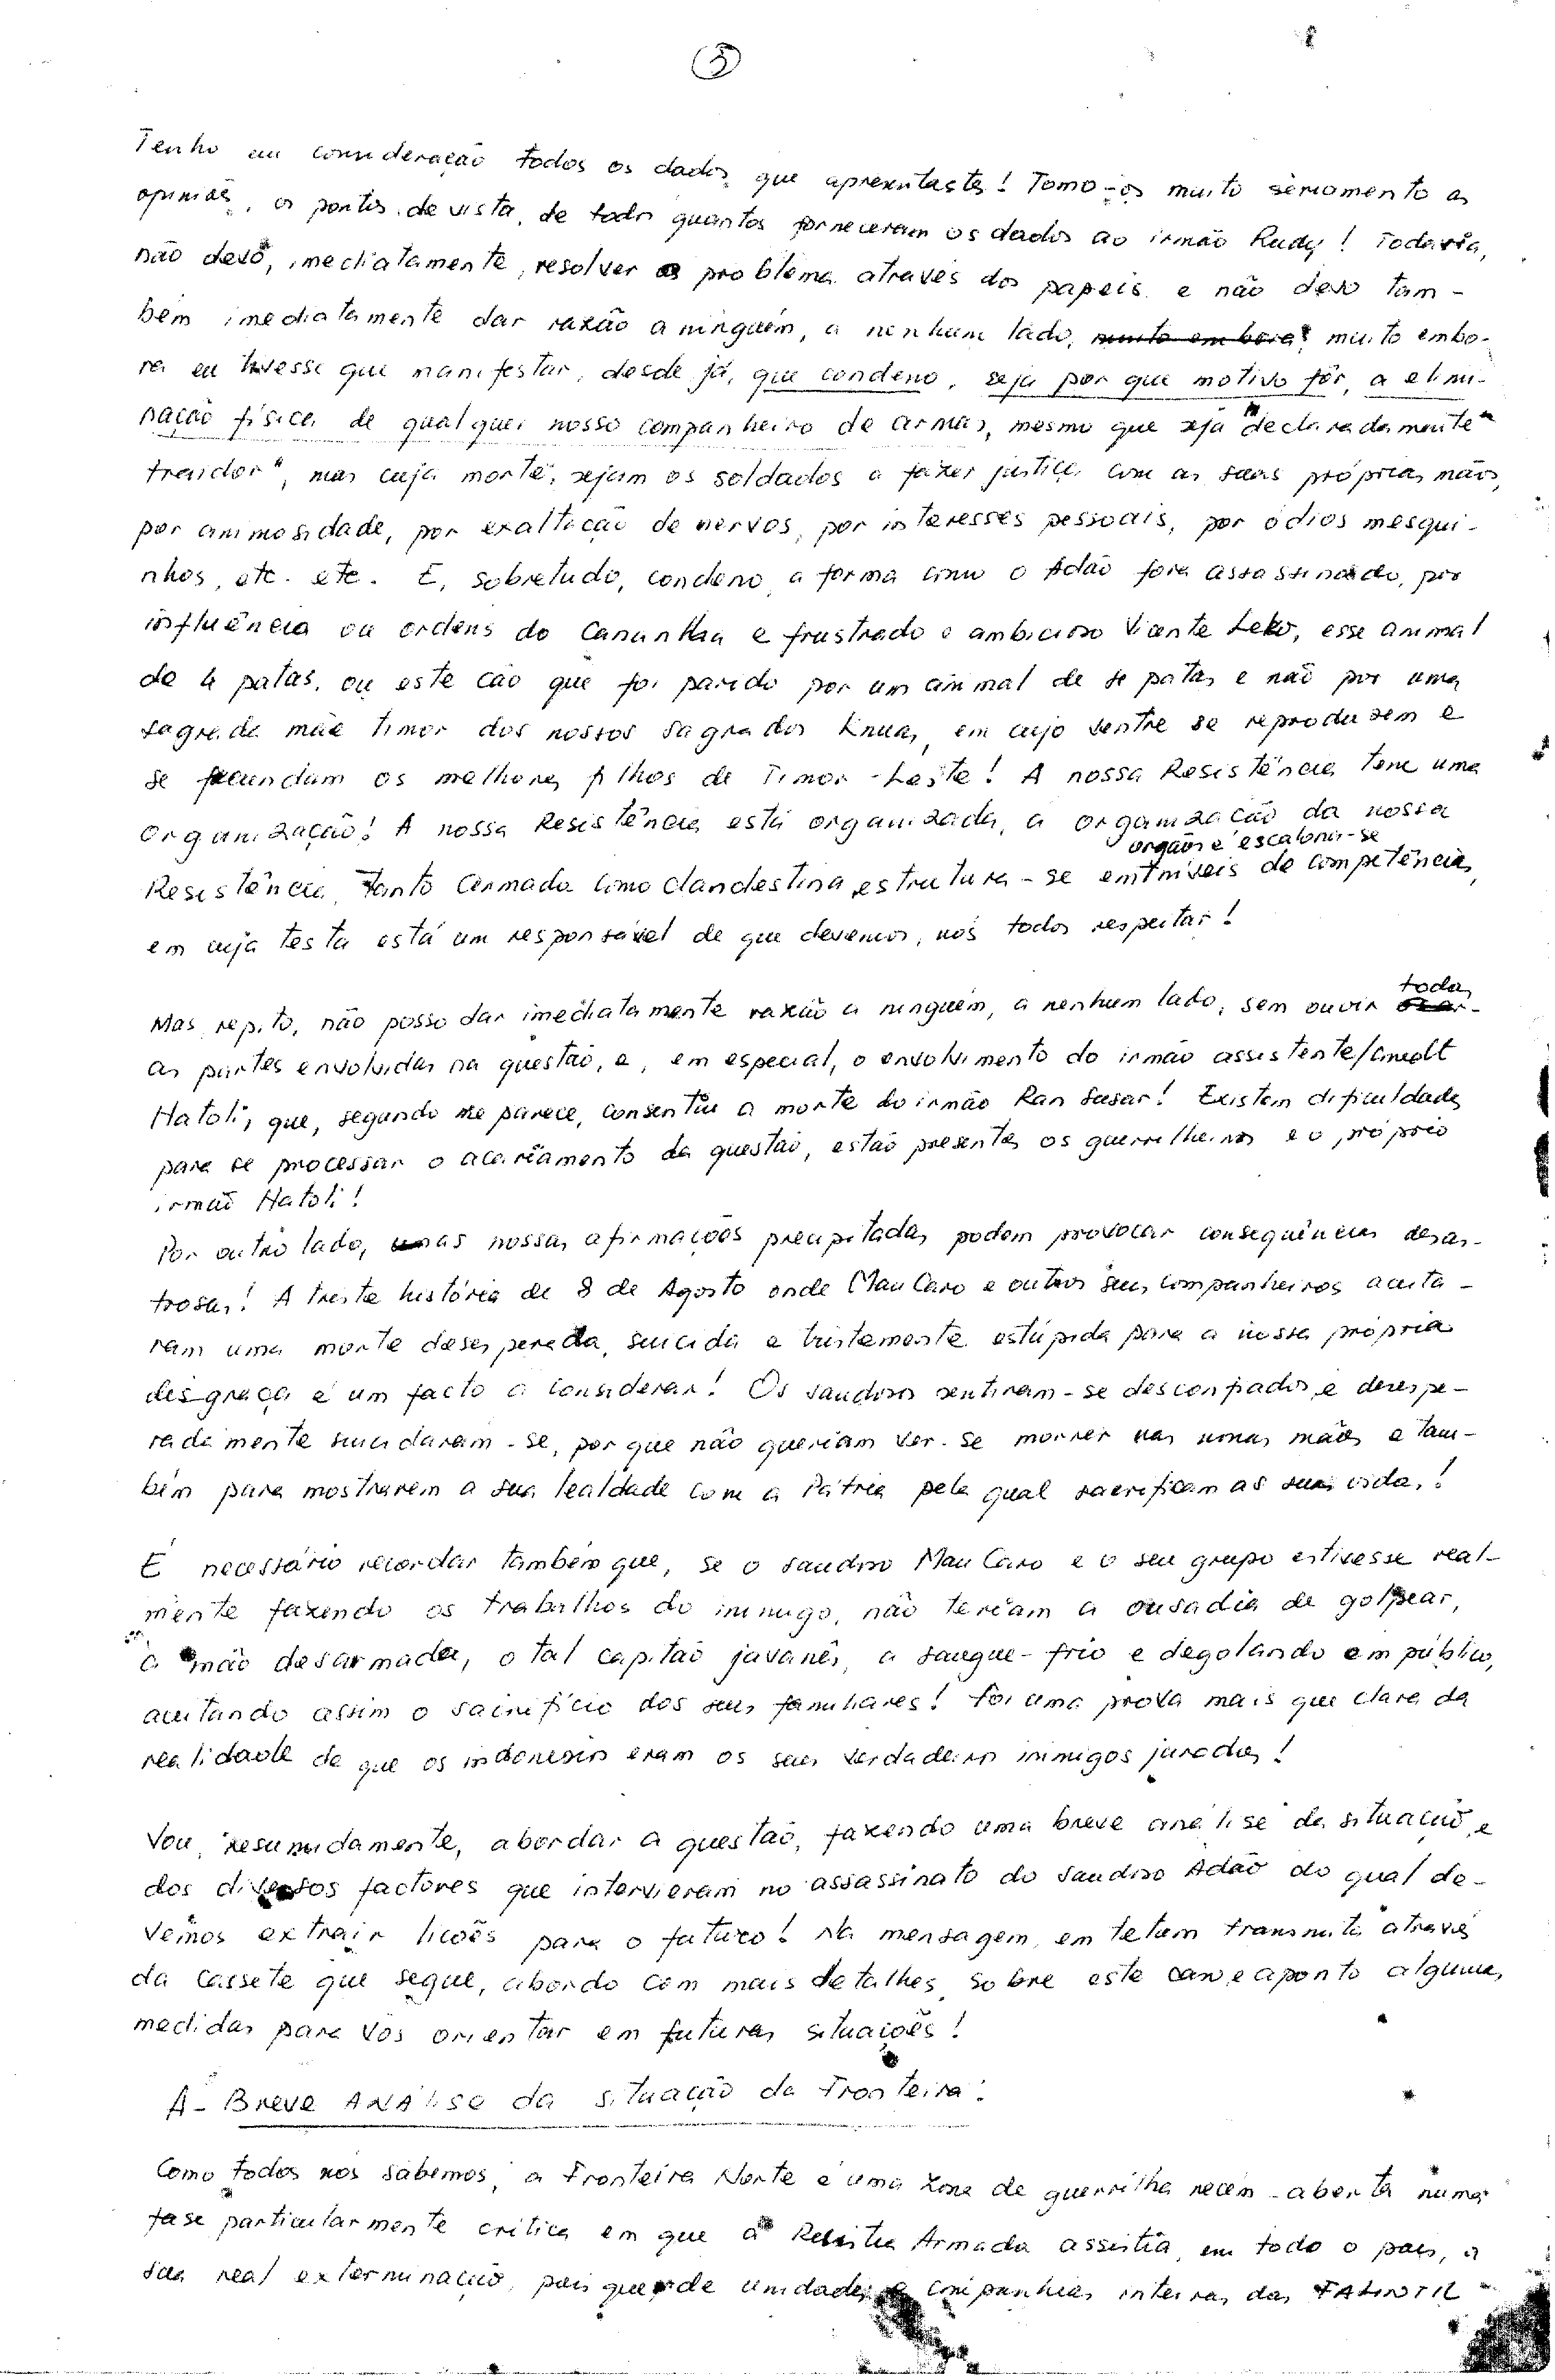 5
Tenho em consideração todos os dados que apresentaste! Tomo-os muito sèriamente as
opiniões, os pontos de vista, de todos quantos forneceram os dados ao irmão Rudy! Todavia,
não devo, imediatamente, resolver os problema através dos papeis e não devo tam-
bém imediatamente dar razão a ninguém, a nenhum lado, muito embora, muito embo-
ra eu tivesse que manifestar, desde já, que condeno, seja por que motivo fôr, a elimi-
nação física de qualquer nosso companheiro de armas, mesmo que seja "declaradamente"
traidor", mas cuja morte, sejam os soldados a fazer justiça com as suas próprias mãos,
por animosidade, por exaltação de nervos, por interesses pessoais, por ódios mesqui-
nhos, etc. etc. E, sobretudo, condeno a forma como o Adão fora assassinado, por
influência ou ordens do Canunha e frustrado e ambicioso Vicente Leko, esse animal
de 4 patas, ou este cão que foi parido por um animal de 4 patas e não por uma
sagrada mãe timor dos nossos sagrados Knuas, em cujo ventre se reproduzem e
se fecundam os melhores filhos de Timor-Leste! A nossa Resistência tem uma
Organização! A nossa Resistência está organizada, a organização da nossa
orgãos e escalona-se
Resistência, tanto Armada como clandestina, estrutura-se em níveis de competência,
em cuja testa está um responsável de que devemos, nós todos respeitar!
Mas repito, não posso dar imediatamente razão a ninguém, a nenhum lado, sem ouvir
todas
as partes envolvidas na questão, e, em especial, o envolvimento do irmão assistente/
Hatoli, que, segundo me parece, consentiu a morte do irmão Ran Susar! Existem dificuldades
para se processar o acareamento da questão, estão presentes os guerrilheiros e o próprio
irmão Hatoli!
Por outro lado, as nossas afirmações precipitadas podem provocar consequências desas-
trosas! A triste história de 8 de Agosto onde Mau Caro e outros seus companheiros aceita-
ram uma morte desesperada, suicida e tristemente estúpida para a nossa própria
desgraça é um facto a considerar! Os saudosos sentiram-se desconfiados e desespe-
radamente suicidaram-se, porque não queriam ver-se morrer nas numas mãos e tam-
bém para mostrarem a sua lealdade com a Pátria pela qual sacrificam as suas vidas!
É necessário recordar também que, se o saudoso Mau Caro e o seu grupo estivesse real-
mente fazendo os trabalhos do inimigo, não teriam a ousadia de golpear,
à mão desarmada, o tal capitão javanês, a sangue-frio e degolando em público,
aceitando assim o sacrifício dos seus familiares! Foi uma prova mais que clara da
realidade de que os indonésios eram os seus verdadeiros inimigos jurados!
Vou, resumidamente, abordar a questão, fazendo uma breve análise da situação e
dos diversos factores que intervieram no assassinato do saudoso Adão do qual de-
vemos extrair licões para o futuro! Na mensagem em tetum transmitida através
da cassete que segue, abordo com mais detalhes sobre este caso e aponto algumas
medidas para vos orientar em futuras situações!
A- Breve ANÁLISE da situação da Fronteira:
Como todos nós sabemos, a Fronteira Norte é uma zona de guerrilha recém-aberta numa
fase particularmente crítica em que a Resistia Armada assistia, em todo o país, a
sua real exterminação, pois que de unidades e companhias inteiras das FALINTIL